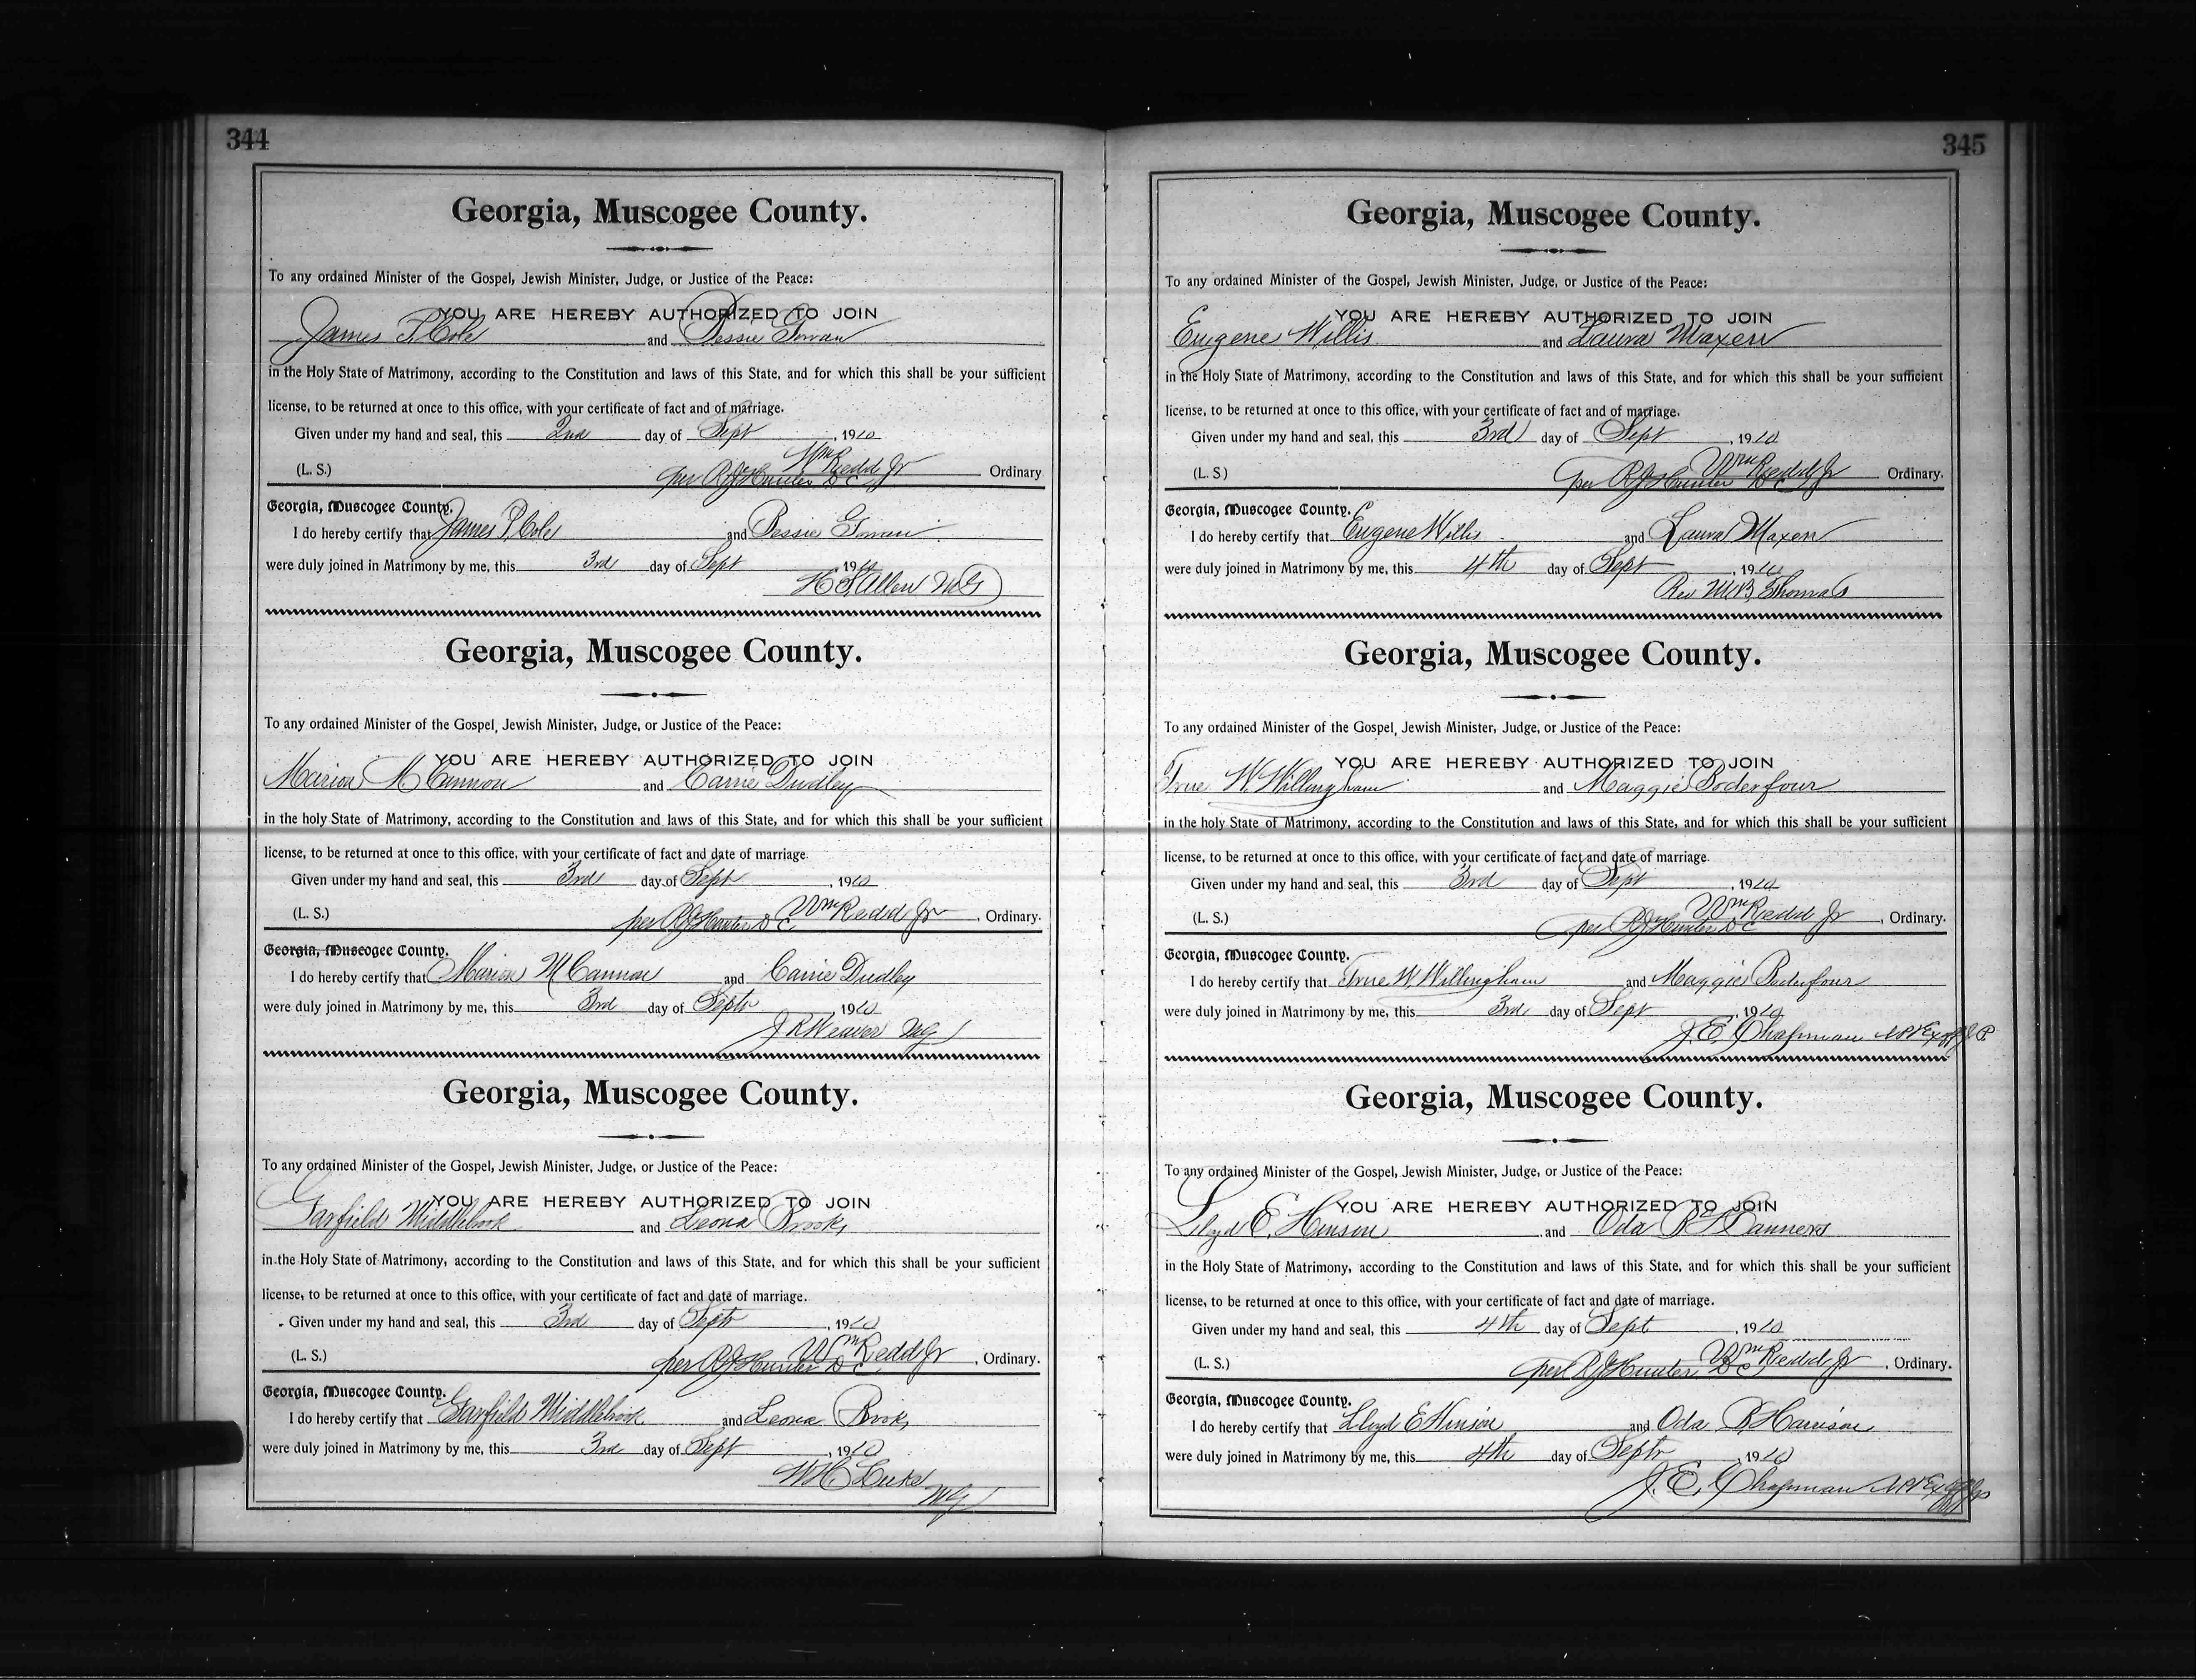 344
Georgia, Muscogee County.
To any ordained Minister of the Gospel, Jewish Minister, Judge, or Justice of the Peace:
YOU ARE HEREBY AUTHORIZED TO JOIN
James P. Cole and Bessie
in the Holy State of Matrimony, according to the Constitution and laws of this State, and for which this shall be your sufficient
license, to be returned at once to this office, with your certificate of fact and of marriage.
Given under my hand and seal, this 2nd day of Sept, 1910
Wm Redd Jr
(L. S.) per R J Hunter D C Ordinary
Georgia, Muscogee County.
I do hereby certify that James P. Cole and Bessie
were duly joined in Matrimony by me, this 3rd day of Sept 1910
H S Allen M G
Georgia, Muscogee County.
To any ordained Minister of the Gospel, Jewish Minister, Judge, or Justice of the Peace:
YOU ARE HEREBY AUTHORIZED TO JOIN
Marion M Cannon and Carrie Dudley
in the holy State of Matrimony, according to the Constitution and laws of this State, and for which this shall be your sufficient
license, to be returned at once to this office, with your certificate of fact and date of marriage.
Given under my hand and seal, this 3rd day of Sept, 1910
(L. S.) per R J Hunter D C Wm Redd Jr, Ordinary.
Georgia, Muscogee County.
I do hereby certify that Marion M Cannon and Carrie Dudley
were duly joined in Matrimony by me, this 3rd day of Sept, 1910
J R Weaver M G
Georgia, Muscogee County.
To any ordained Minister of the Gospel, Jewish Minister, Judge, or Justice of the Peace:
YOU ARE HEREBY AUTHORIZED TO JOIN
Garfield Middlebook and Leona Brooks
in the Holy State of Matrimony, according to the Constitution and laws of this State, and for which this shall be your sufficient
license, to be returned at once to this office, with your certificate of fact and date of marriage.
Given under my hand and seal, this 3rd day of Sept, 1910
(L. S.) per R J Hunter D C Wm Redd Jr, Ordinary.
Georgia, Muscogee County.
I do hereby certify that Garfield Middlebrook and Leona Brooks
were duly joined in Matrimony by me, this 3rd day of Sept, 1910
W H Luke
M G
345
Georgia, Muscogee County.
To any ordained Minister of the Gospel, Jewish Minister, Judge, or Justice of the Peace:
YOU ARE HEREBY AUTHORIZED TO JOIN
Eugene Willis and Laura Maxen
in the Holy State of Matrimony, according to the Constitution and laws of this State, and for which this shall be your sufficient
license, to be returned at once to this office, with your certificate of fact and of marriage.
Given under my hand and seal, this 3rd day of Sept, 1910
Wm Redd Jr
(L. S) per R J Hunter D C Ordinary.
Georgia, Muscogee County.
I do hereby certify that Eugene Willis and Laura Maxen
were duly joined in Matrimony by me, this 4th day of Sept, 1910
Rev M B Thomas
Georgia, Muscogee County.
To any ordained Minister of the Gospel, Jewish Minister, Judge, or Justice of the Peace:
YOU ARE HEREBY AUTHORIZED TO JOIN
True W. Willingham and Maggie Boderfour
in the holy State of Matrimony, according to the Constitution and laws of this State, and for which this shall be your sufficient
license, to be returned at once to this office, with your certificate of fact and date of marriage.
Given under my hand and seal, this 3rd day of Sept, 1910
Wm Redd Jr
(L. S.) per R J Hunter D C, Ordinary.
Georgia, Muscogee County.
I do hereby certify that True W. Willingham and Maggie Boderfour
were duly joined in Matrimony by me, this 3rd day of Sept, 1910
J. E. Chapman N P & Ex off J P.
Georgia, Muscogee County.
To any ordained Minister of the Gospel, Jewish Minister, Judge, or Justice of the Peace:
YOU ARE HEREBY AUTHORIZED TO JOIN
Lloyd E. Hinson and Oda
in the Holy State of Matrimony, according to the Constitution and laws of this State, and for which this shall be your sufficient
license, to be returned at once to this office, with your certificate of fact and date of marriage.
Given under my hand and seal, this 4th day of Sept, 1910
Wm Redd Jr
(L. S.) per R J Hunter D C, Ordinary.
Georgia, Muscogee County.
I do hereby certify that Lloyd E Hinson and Oda B. Harrison
were duly joined in Matrimony by me, this 4th day of Sept, 1910
J. E. Chapman N P & Ex off